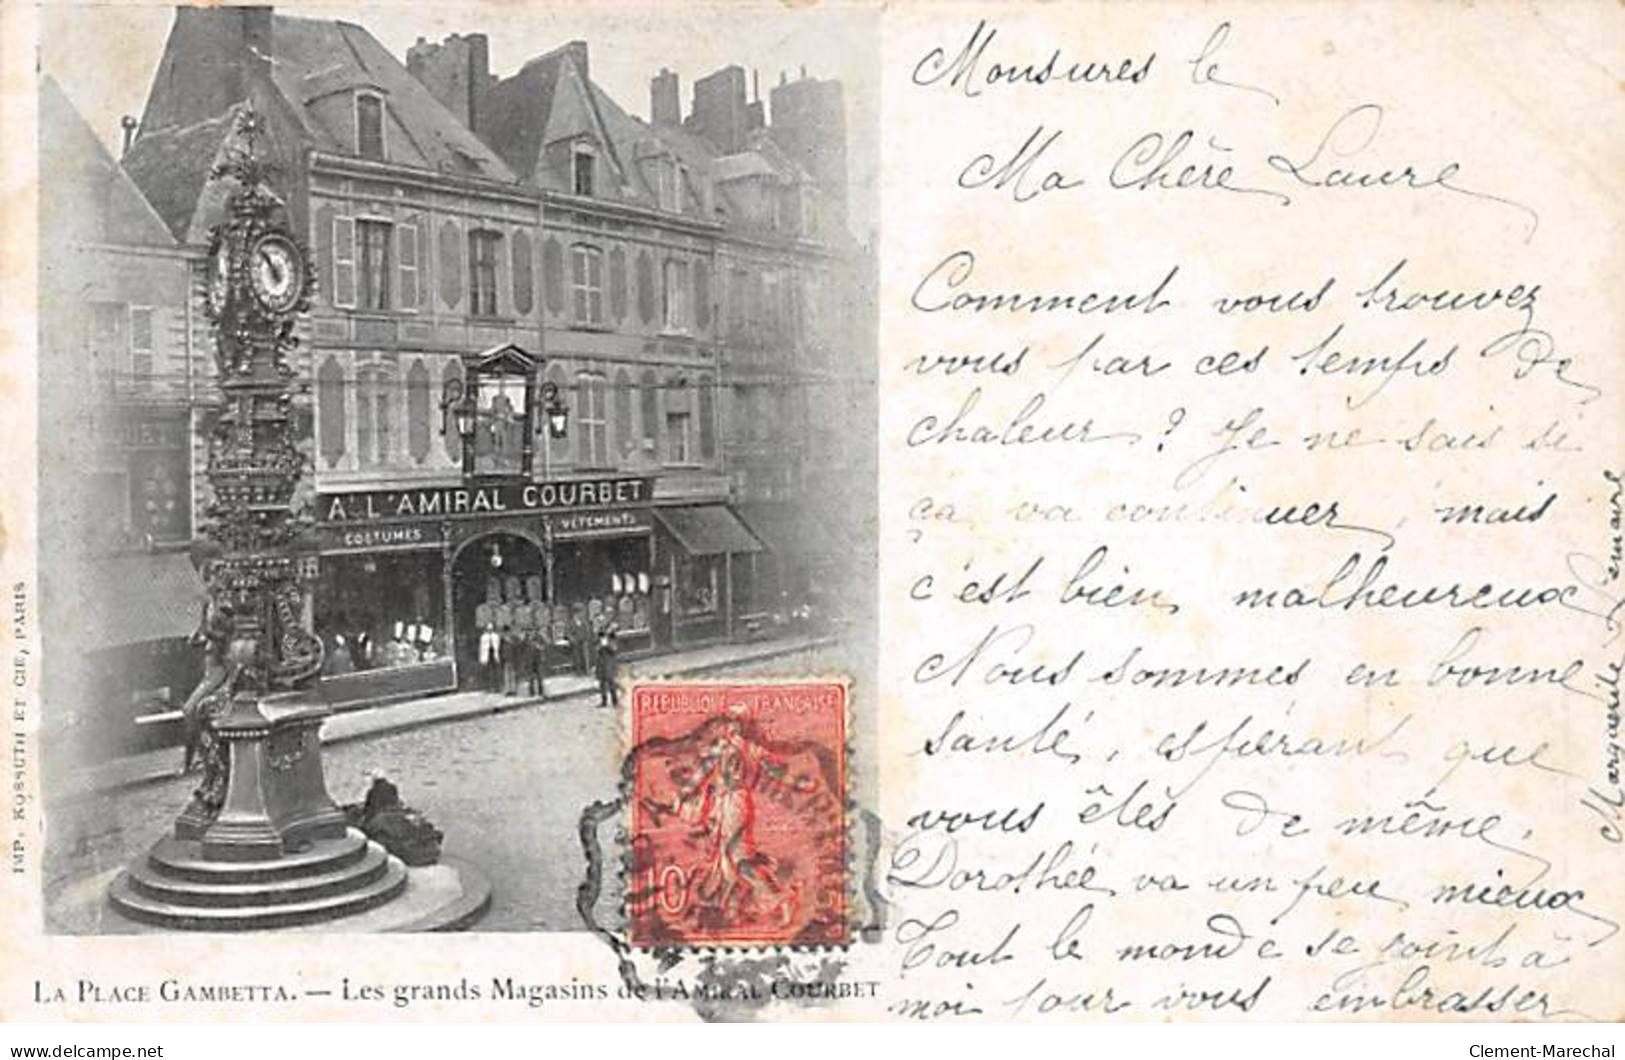 Monsures le
Ma Chère Laure
Comment vous trouvez
vous par ces temps de
chaleur ? Je ne sais si
ça va continuer, mais
c'est bien malheureux
Nous sommes en bonne
santé, espérant que
vous êtes de même.
Dorothée va un peu mieux
Tout le monde se joint à
moi pour vous embrasser
Marguerite Lemaire
A L'AMIRAL COURBET
COSTUMES
VÊTEMENTS
REPUBLIQUE FRANÇAISE
10
IMP. KOSSUTH ET CIE, PARIS
LA PLACE GAMBETTA. — Les grands Magasins de l'AMIRAL COURBET
www.delcampe.net
Clement-Marechal